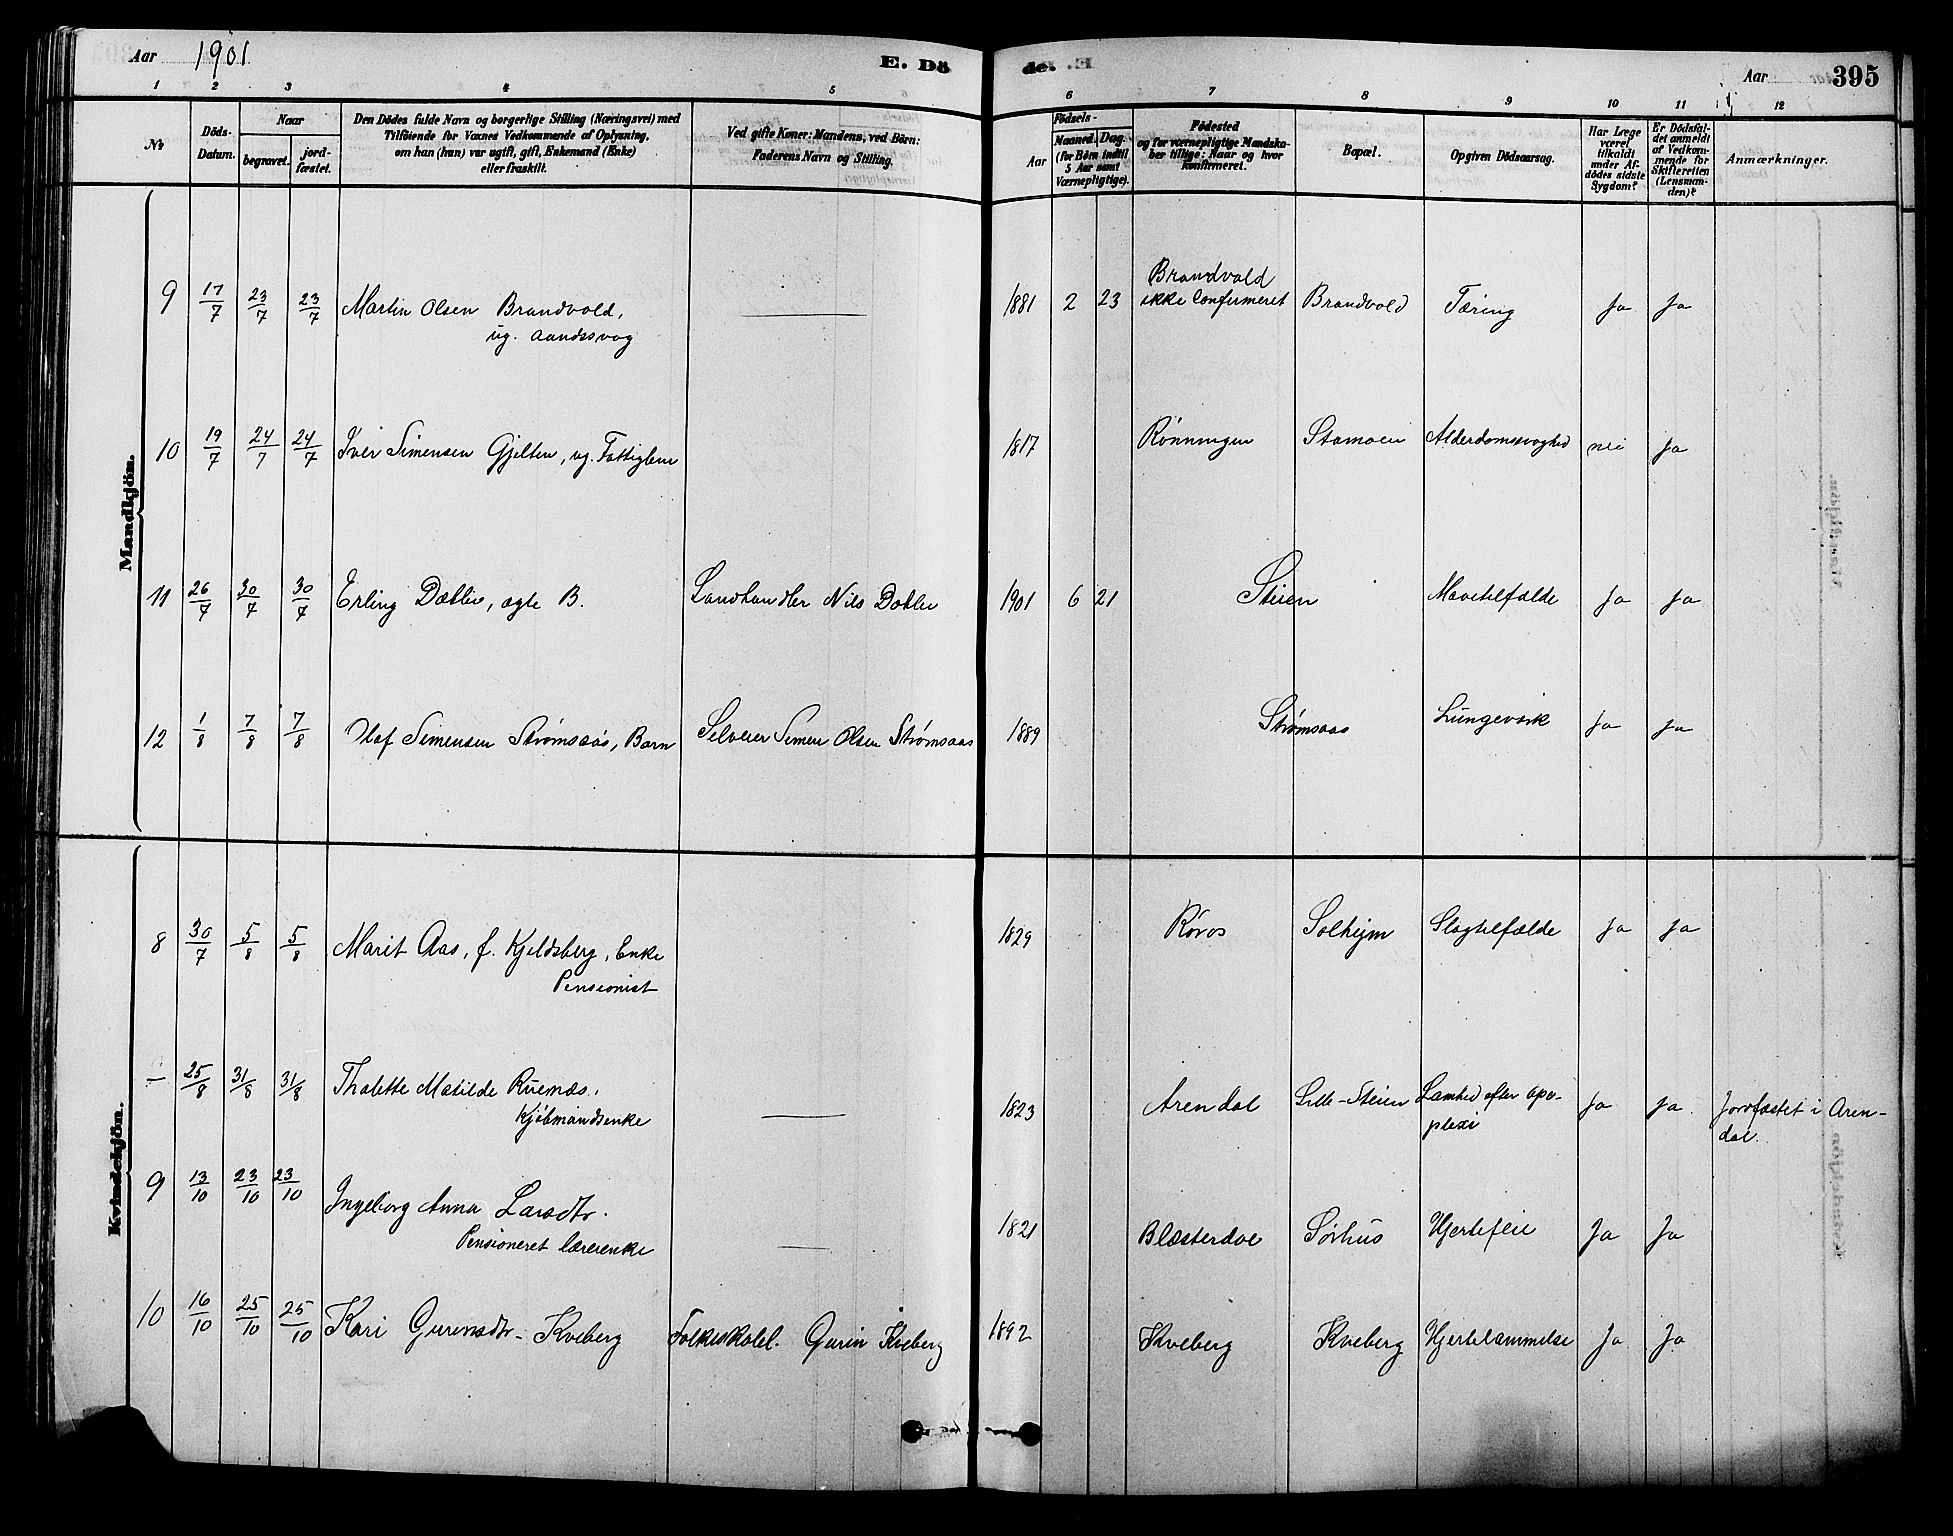 Aar 1901
E. Dö
de.
Aar
395
1 2 3 4 5 6 7 8 9 10 11 12
No
Döds-Datum.
Naar
begravet.
jord-fæstet.
Den Dödes fulde Navn og borgerlige Stilling (Næringsvei) med
Tilföiende for Voxnes Vedkommende af Oplysning,
om han (hun) var ugift, gift, Enkemand (Enke)
eller fraskilt.
Ved gifte Koner: Mandens, ved Börn:
Faderens Navn og Stilling.
Födsels-
Aar
Maaned.
Dag.
(for Börn indtil
5 Aar samt
Værnepligtige).
Födested
og for værnepligtige Mandska-
ber tillige: Naar og hvor
konfirmeret.
Bopæl.
Opgiven Dödsaarsag.
Har Læge
været
tilkaldt
under Af-
dödes sidste
Sygdom?
Er Dödsfal-
det anmeldt
af Vedkom-
mende for
Skifteretten
(Lensman-
den)?
Anmærkninger.
Mandkjön.
9 17/7 23/7 23/7 Martin Olsen Brandvold, 1881 2 23 Brandvold Brandvold Tæring Ja Ja
ug. aandssvag ikke Confirmeret
10 19/7 24/7 24/7 Iver Simensen Gjelten, ug. Fattiglem 1817 Rønningen Stamoen Alderdomssvaghed nei Ja
11 26/7 30/7 30/7 Erling Dæhlie, ægte B. Landhandler Nils Dæhlie 1901 6 21 Steien Mavetilfælde Ja Ja
12 1/8 7/8 7/8 Olaf Simensen Strømsaas, Barn Selveier Simen Olsen Strømsaas 1889 Strømsaas Lungevärk Ja Ja
Kvindekjön.
8 30/7 5/8 5/8 Marit Aas, f. Kjeldsberg, Enke 1829 Røros Solhejm Slagtilfælde Ja Ja
Pensionist
– 25/8 31/8 31/8 Thalette Matilde Ruenæs, 1823 Arendal Lille-Steien Lamhed efter apo- Ja Ja. Jordfæstet i Aren-
Kjøbmandsenke plexi dal.
9 13/10 23/10 23/10 Ingeborg Anna Larsdtr. 1821 Blæsterdal Sørhus Hjertefeil Ja Ja
Pensioneret lærerenke
10 16/10 25/10 25/10 Kari Gurensdtr. Kveberg Folkeskolel. Gurin Kveberg 1892 Kveberg Kveberg Hjertelammelse Ja Ja